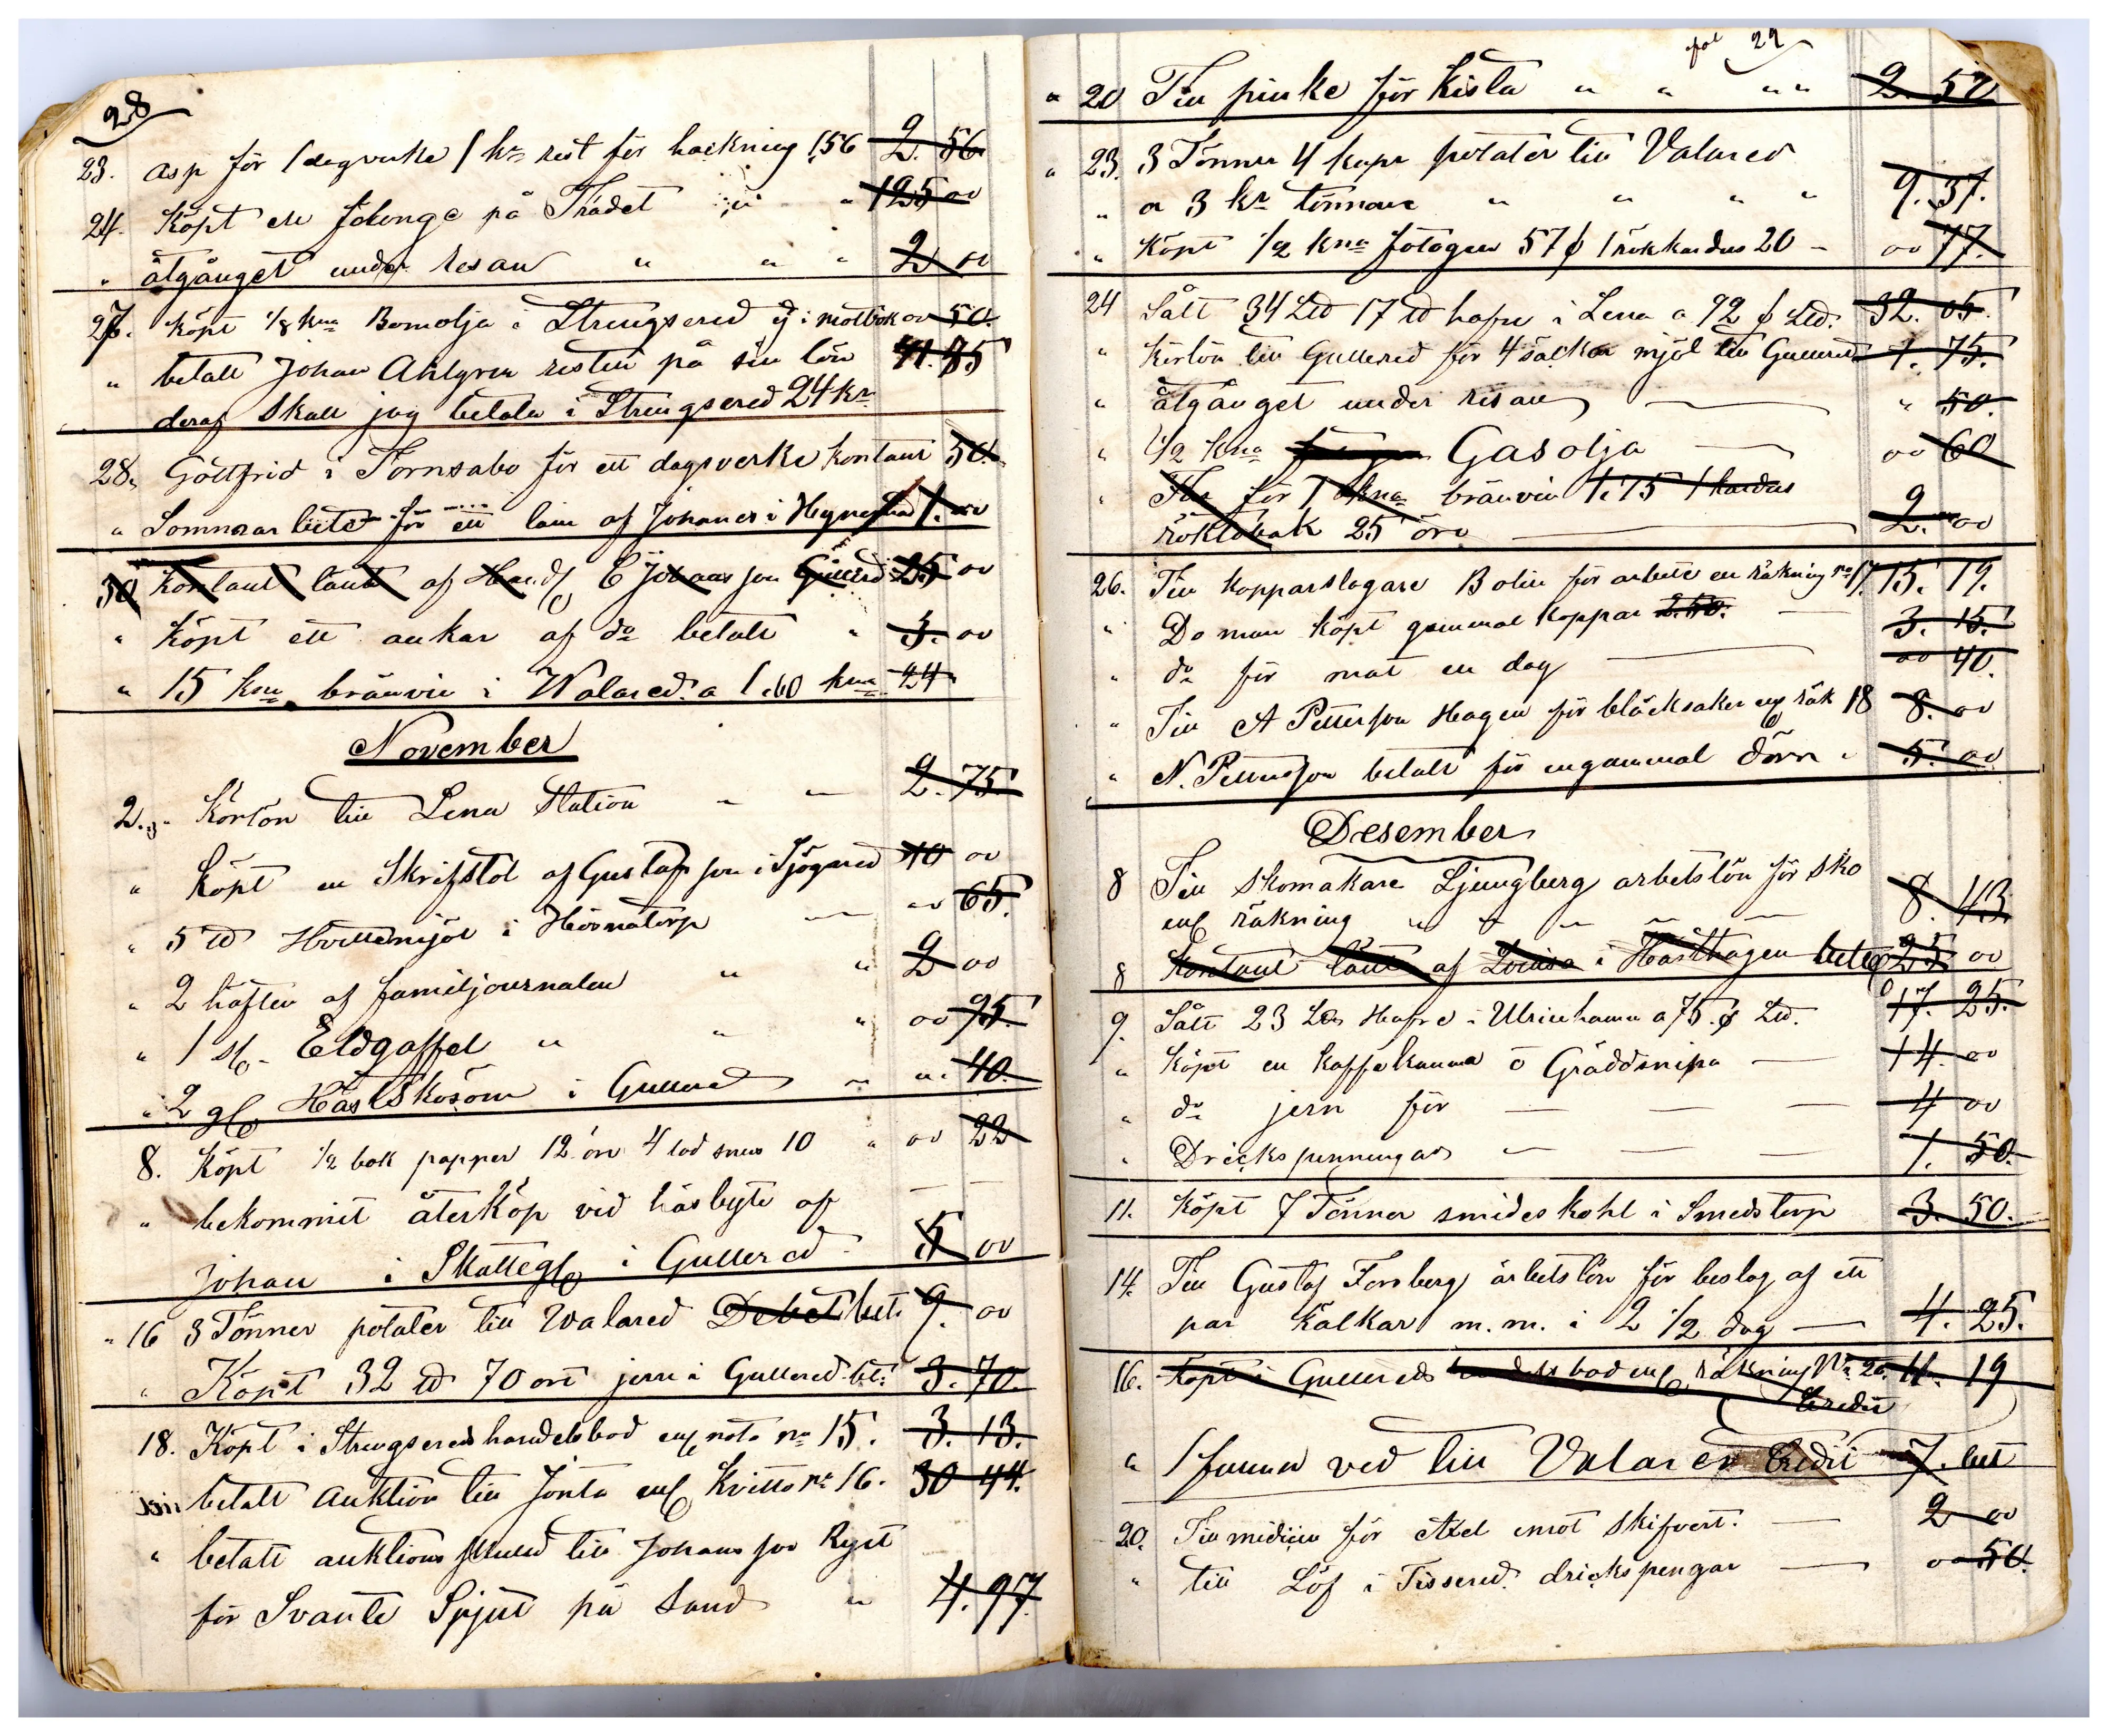 28
23. Asp för 1 dagsverke 1 kr rest för hackning 1,56 2. 56
24. Köpt en på Trädet " " 125 00
" åtgånget under resan " " " 2 00
27. köpt 1/8 kna Bomolja i Strengsered ej i motbok 00 50.
" betalt Johan Ahlgren resten på sin lön 41. 85
" deraf skall jag betala i Strengsered 24 kr
28. Gottfrid i Tornsabo för ett dagsverke kontant 50.
" Sommarbete för ett lam af Johanes i 1. 00
30 Kontant lånt af E Johansson Gullered 25 00
" Köpt ett ankar af do betalt " 3. 00
" 15 kna bränvin i Walared a 1.60 kna 24
November
2. Körlön till Lena Station " — 2. 75
" Köpt en Skrifstol af Gustafson i Sjögared 10 00
" 5 ℔ Hvetemjöl i Hörnatorp — 00 65.
" 2 häften af familjournalen " " 2 00
" 1 st. Eldgaffel " " " 00 95.
" 2 Hästskosöm i Gullered " " 40.
8. Köpt 1/2 bok papper 12 öre 4 lod snus 10 " 00 22
" bekommit återköp vid häsbyte af
Johan i Skattegl i Gullered 5 00
" 16 3 Tönner potater till Walared Debet bet. 9. 00
" Köpt 32 ℔ 70 öre jern i Gullered bet: 3. 70.
18. Köpt i Strengsered handelsbod enl nota no 15. 3. 13.
betalt Auktion till Jonta enl Kvitto no 16. 30 44.
" betalt auktions skuld till Johansson Ryst
för Svante Spjut på Sand " 4. 97.
29
" 20 Till pinke för Kista " " " " 2. 50
" 23. 3 Tönner 4 kapr potater till Valared
" a 3 kr tönnan " " " " 9. 37.
" Köpt 1/2 kna fotogen 57 ₵ 1 rökkardus 20 — 00 77.
24 Sålt 34 L℔ 17 ℔ hafre i Lena a 92 ₵ L℔. 32. 05.
" Körlön till Gullered för 4 säckar mjöl till Gullered 1. 75.
" åtgånget under resan — " 50.
" 1/2 kna Gasolja — 00 60
" för 1 kna bränvin 1:75 1 kardus
röktobak 25 öre — 2. 00
26. Till Kopparslagare Bolin för arbete en räkning no 17. 15. 19.
" Do man köpt gammal koppar 2.50. — 3. 15.
" do för mat en dag — 00 40.
" Till A Petterson Hagen för bläcksaker enl räk 18 8. 00
" N. Petterson betalt för en gammal dörr " 5. 00
Desember
8 Till Skomakare Ljungberg arbetslön för sko
enl räkning " " " — 8. 43
8 Kontant lånt af Lovisa i Hästhagen 25 00
9. Sålt 23 L℔ Hafre i Ulricehamn a 75 ₵ L℔. 17. 25.
" Köpt en kaffekanna o Gräddsnipa — 14. 00
" do jern för — — — 4 00
" Drickspenningar — — — 1. 50.
11. Köpt 7 Tönner smideskohl i Smedstorp 3. 50.
14. Till Gustaf Forsberg arbetslön för beslag af ett
par Kälkar m.m. i 2 1/2 dag — 4. 25.
16. Köpt i Gullereds handelsbod enl räkning No 20. 11. 19
Credit
" 1 famn ved till Valared Credit 7. bett
20. Till midisin för Axel emot skifvert. — 2 00
" till Löf i Tissered drickspengar — 00 50.